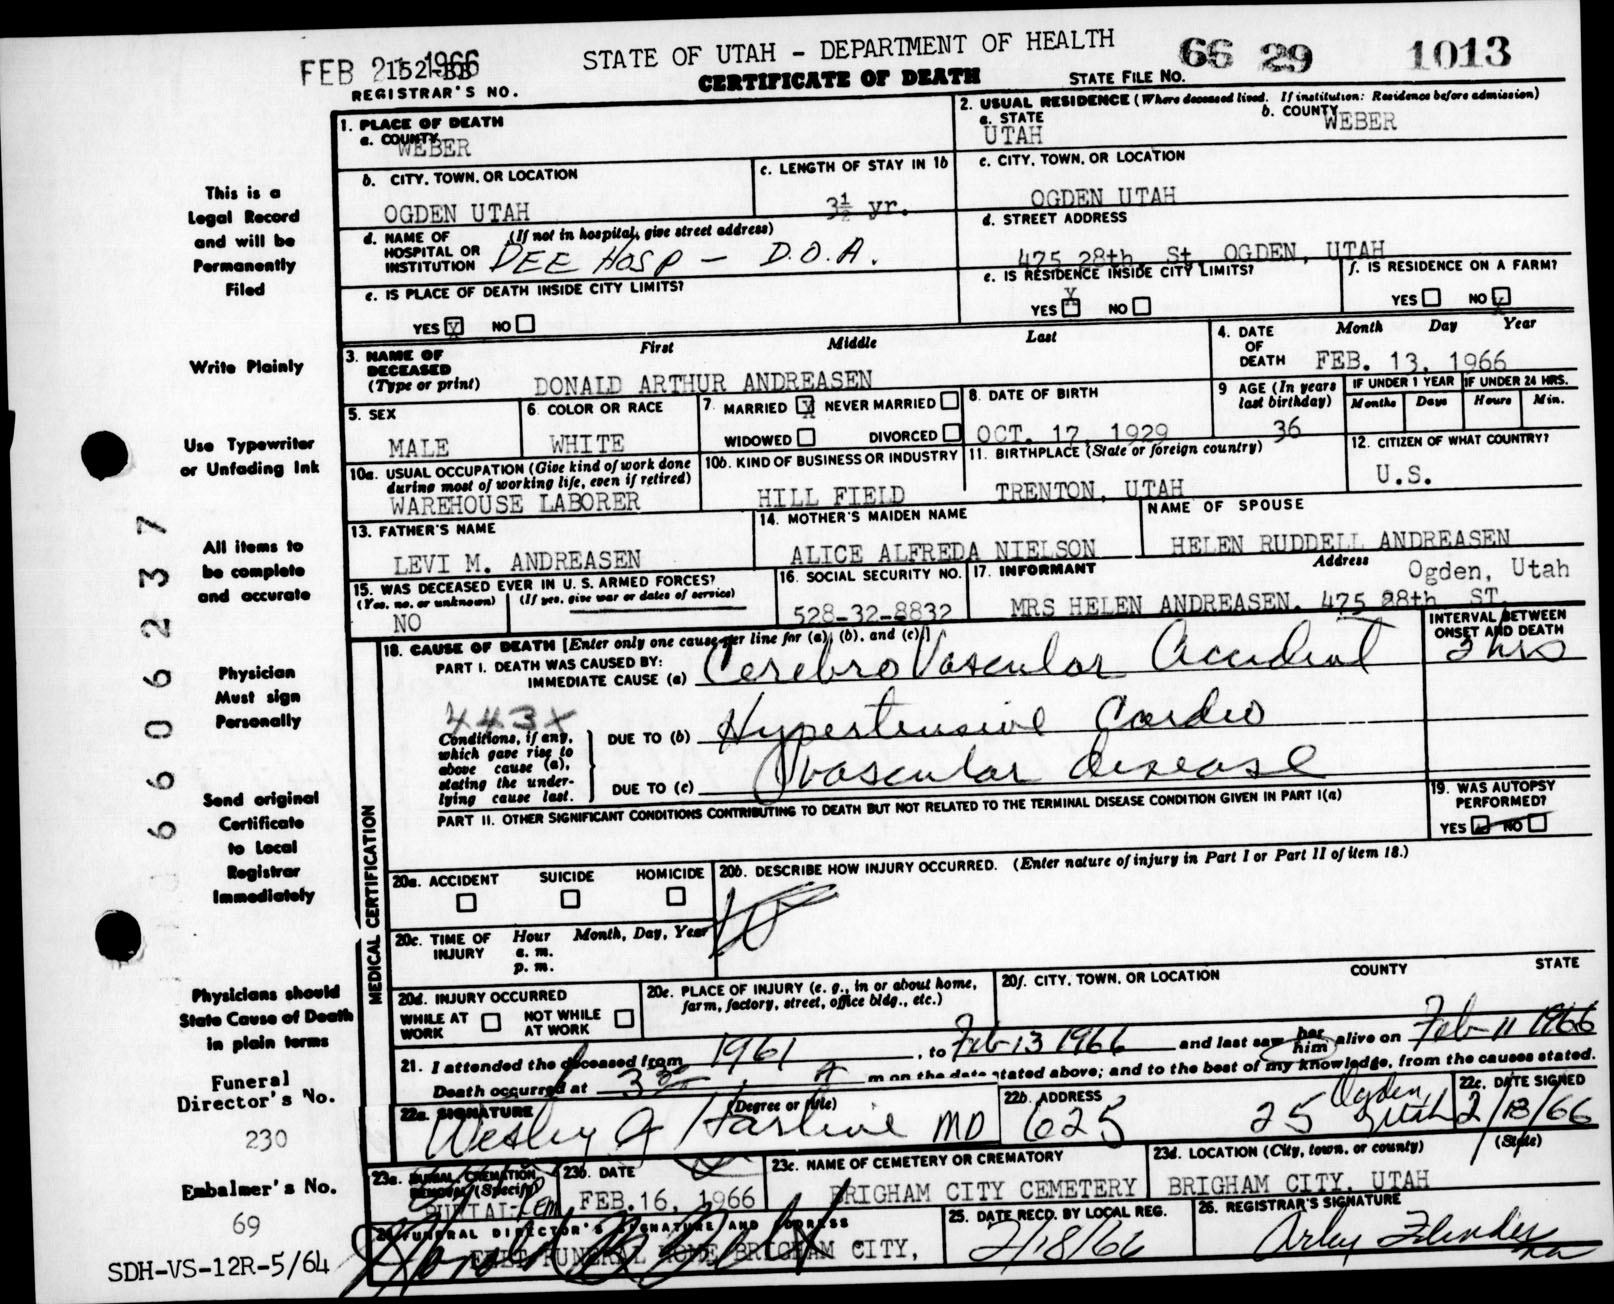 FEB 21 1966
152-BB
REGISTRAR'S NO.
STATE OF UTAH - DEPARTMENT OF HEALTH
CERTIFICATE OF DEATH
STATE FILE NO. 66 29 1013
1. PLACE OF DEATH
a. COUNTY
WEBER
2. USUAL RESIDENCE (Where deceased lived. If institution: Residence before admission)
a. STATE
UTAH
b. COUNTY
WEBER
b. CITY, TOWN, OR LOCATION
OGDEN UTAH
c. LENGTH OF STAY IN 1b
3½ yr.
c. CITY, TOWN, OR LOCATION
OGDEN UTAH
d. NAME OF HOSPITAL OR INSTITUTION
(If not in hospital, give street address)
DEE HOSP - D.O.A.
d. STREET ADDRESS
475 28th St. OGDEN, UTAH
e. IS PLACE OF DEATH INSIDE CITY LIMITS?
YES X NO
e. IS RESIDENCE INSIDE CITY LIMITS?
YES X NO
f. IS RESIDENCE ON A FARM?
YES NO X
3. NAME OF DECEASED
(Type or print)
First Middle Last
DONALD ARTHUR ANDREASEN
4. DATE OF DEATH
Month Day Year
FEB. 13, 1966
5. SEX
MALE
6. COLOR OR RACE
WHITE
7. MARRIED X NEVER MARRIED
WIDOWED DIVORCED
8. DATE OF BIRTH
OCT. 17, 1929
9 AGE (In years last birthday)
36
IF UNDER 1 YEAR
Months Days
IF UNDER 24 HRS.
Hours Min.
10a. USUAL OCCUPATION (Give kind of work done during most of working life, even if retired)
WAREHOUSE LABORER
10b. KIND OF BUSINESS OR INDUSTRY
HILL FIELD
11. BIRTHPLACE (State or foreign country)
TRENTON, UTAH
12. CITIZEN OF WHAT COUNTRY?
U.S.
13. FATHER'S NAME
LEVI M. ANDREASEN
14. MOTHER'S MAIDEN NAME
ALICE ALFREDA NIELSON
NAME OF SPOUSE
HELEN RUDDELL ANDREASEN
15. WAS DECEASED EVER IN U. S. ARMED FORCES?
(Yes, no, or unknown) (If yes, give war or dates of service)
NO
16. SOCIAL SECURITY NO.
528-32-8832
17. INFORMANT Address
Ogden, Utah
MRS HELEN ANDREASEN. 475 28th ST.
MEDICAL CERTIFICATION
18. CAUSE OF DEATH [Enter only one cause per line for (a), (b), and (c).]
INTERVAL BETWEEN ONSET AND DEATH
PART I. DEATH WAS CAUSED BY:
IMMEDIATE CAUSE (a) Cerebro Vascular Accident
hrs
443X
Conditions, if any, which gave rise to above cause (a), stating the underlying cause last.
DUE TO (b) Hypertensive Cardio
DUE TO (c) vascular disease
PART II. OTHER SIGNIFICANT CONDITIONS CONTRIBUTING TO DEATH BUT NOT RELATED TO THE TERMINAL DISEASE CONDITION GIVEN IN PART I(a)
19. WAS AUTOPSY PERFORMED?
YES NO
20a. ACCIDENT SUICIDE HOMICIDE
20b. DESCRIBE HOW INJURY OCCURRED. (Enter nature of injury in Part I or Part II of item 18.)
20c. TIME OF INJURY
Hour Month, Day, Year
a. m.
p. m.
20d. INJURY OCCURRED
WHILE AT WORK NOT WHILE AT WORK
20e. PLACE OF INJURY (e. g., in or about home, farm, factory, street, office bldg., etc.)
20f. CITY, TOWN, OR LOCATION COUNTY STATE
21. I attended the deceased from 1961, to Feb 13 1966 and last saw her him alive on Feb 11 1966
Death occurred at A m on the date stated above; and to the best of my knowledge, from the causes stated.
22a. SIGNATURE (Degree or title)
Wesley MD
22b. ADDRESS
625 25 Ogden Utah
22c. DATE SIGNED
2/18/66
23a. BURIAL, CREMATION, REMOVAL (Specify)
BURIAL-Rem
23b. DATE
FEB.16, 1966
23c. NAME OF CEMETERY OR CREMATORY
BRIGHAM CITY CEMETERY
23d. LOCATION (City, town, or county) (State)
BRIGHAM CITY, UTAH
24. FUNERAL DIRECTOR'S SIGNATURE AND ADDRESS
FUNERAL HOME BRIGHAM CITY,
25. DATE RECD. BY LOCAL REG.
2/18/66
26. REGISTRAR'S SIGNATURE
This is a
Legal Record
and will be
Permanently
Filed
Write Plainly
Use Typewriter
or Unfading Ink
All items to
be complete
and accurate
Physician
Must sign
Personally
Send original
Certificate
to Local
Registrar
Immediately
Physicians should
State Cause of Death
in plain terms
Funeral
Director's No.
230
Embalmer's No.
69
SDH-VS-12R-5/64
66 06237